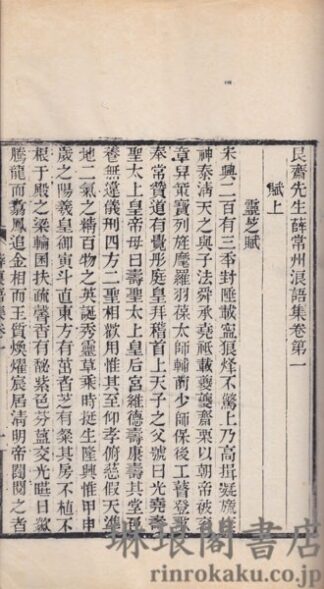 艮齋先生薛常州浪語集卷第一
賦上
靈芝賦
宋興二百有三季封陲載寍狼烽不驚上乃高揖凝
神泰淸天之與子法舜承堯祗載夔夔齋栗以朝帝被
章昇策寶列旌麾羅羽葆太師輔前少師保後工瞽登
奉常贊道有覺彤庭皇拜稽首上天子之父號曰光堯壽
聖太上皇帝母曰壽聖太上皇后宮維德壽康壽其堂
巷無違儀刑四方二聖相歡用惟其至仰孝俯慈假天
地二氣之精百物之英誕秀靈草乘時挺生隆興惟甲申
歲之陽羲皇御寅斗直東方有茁者芝有粲其房不植不
根于殿之梁輪囷扶疏馨香有飶紫色芬葢交光暀日歘
騰龍而翥鳳追金相而玉質煥燿宸居淸明帝閱閱之者
琳琅閣書店
rinrokaku.co.jp